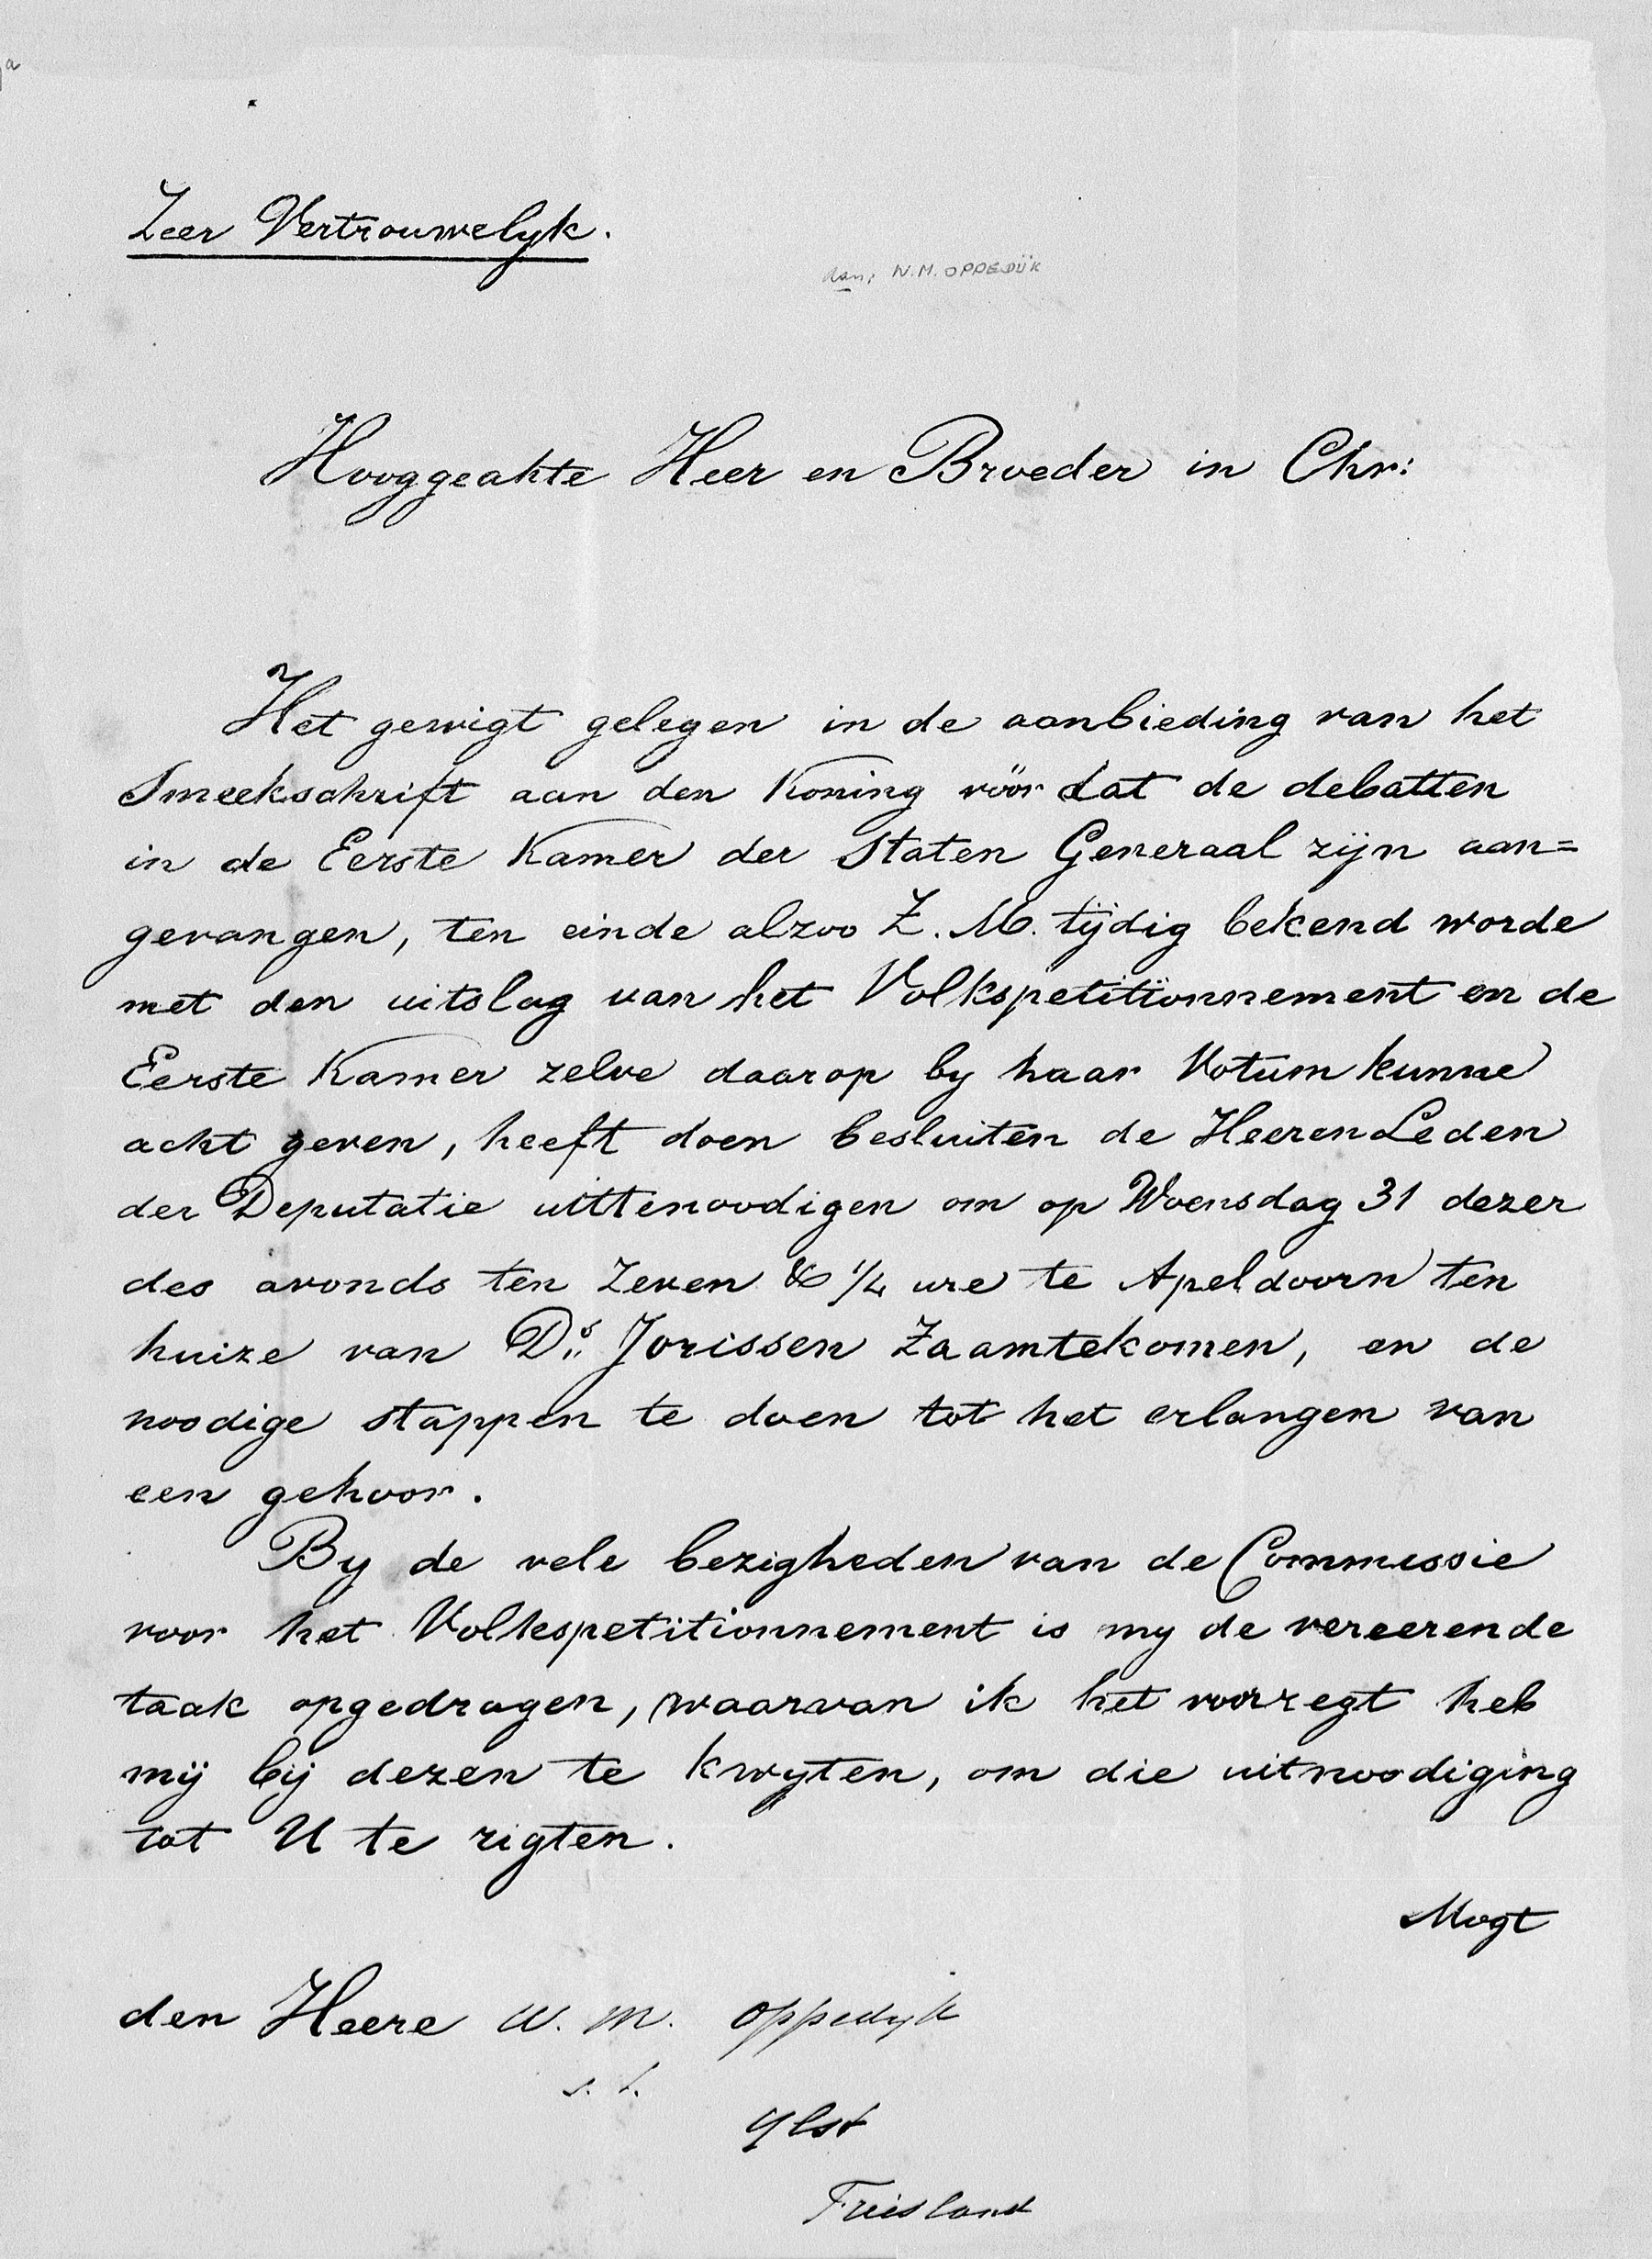 Zeer Vertrouwelyk.
aan: W.M. OPPEDIJK
Hooggeakte Heer en Broeder in Chr:
Het gewigt gelegen in de aanbieding van het
Smeekschrift aan den Koning vöör dat de debatten
in de Eerste Kamer der Staten Generaal zijn aan=
gevangen, ten einde alzoo Z. M. tijdig bekend worde
met den uitslag van het Volkspetitionnement en de
Eerste Kamer zelve daarop by haar Votum kunne
acht geven, heeft doen besluiten de Heeren Leden
der Deputatie uittenoodigen om op Woensdag 31 dezer
des avonds ten Zeven & 1/4 ure te Apeldoorn ten
huize van Ds. Jorissen Zaamtekomen, en de
noodige stappen te doen tot het erlangen van
een gehoor.
By de vele bezigheden van de Commissie
voor het Volkspetitionnement is my de vereerende
taak opgedragen, waarvan ik het voorregt heb
mij bij dezen te kwyten, om die uitnoodiging
tot U te rigten.
Mogt
den Heere W. M. Oppedijk
Ylst
Friesland